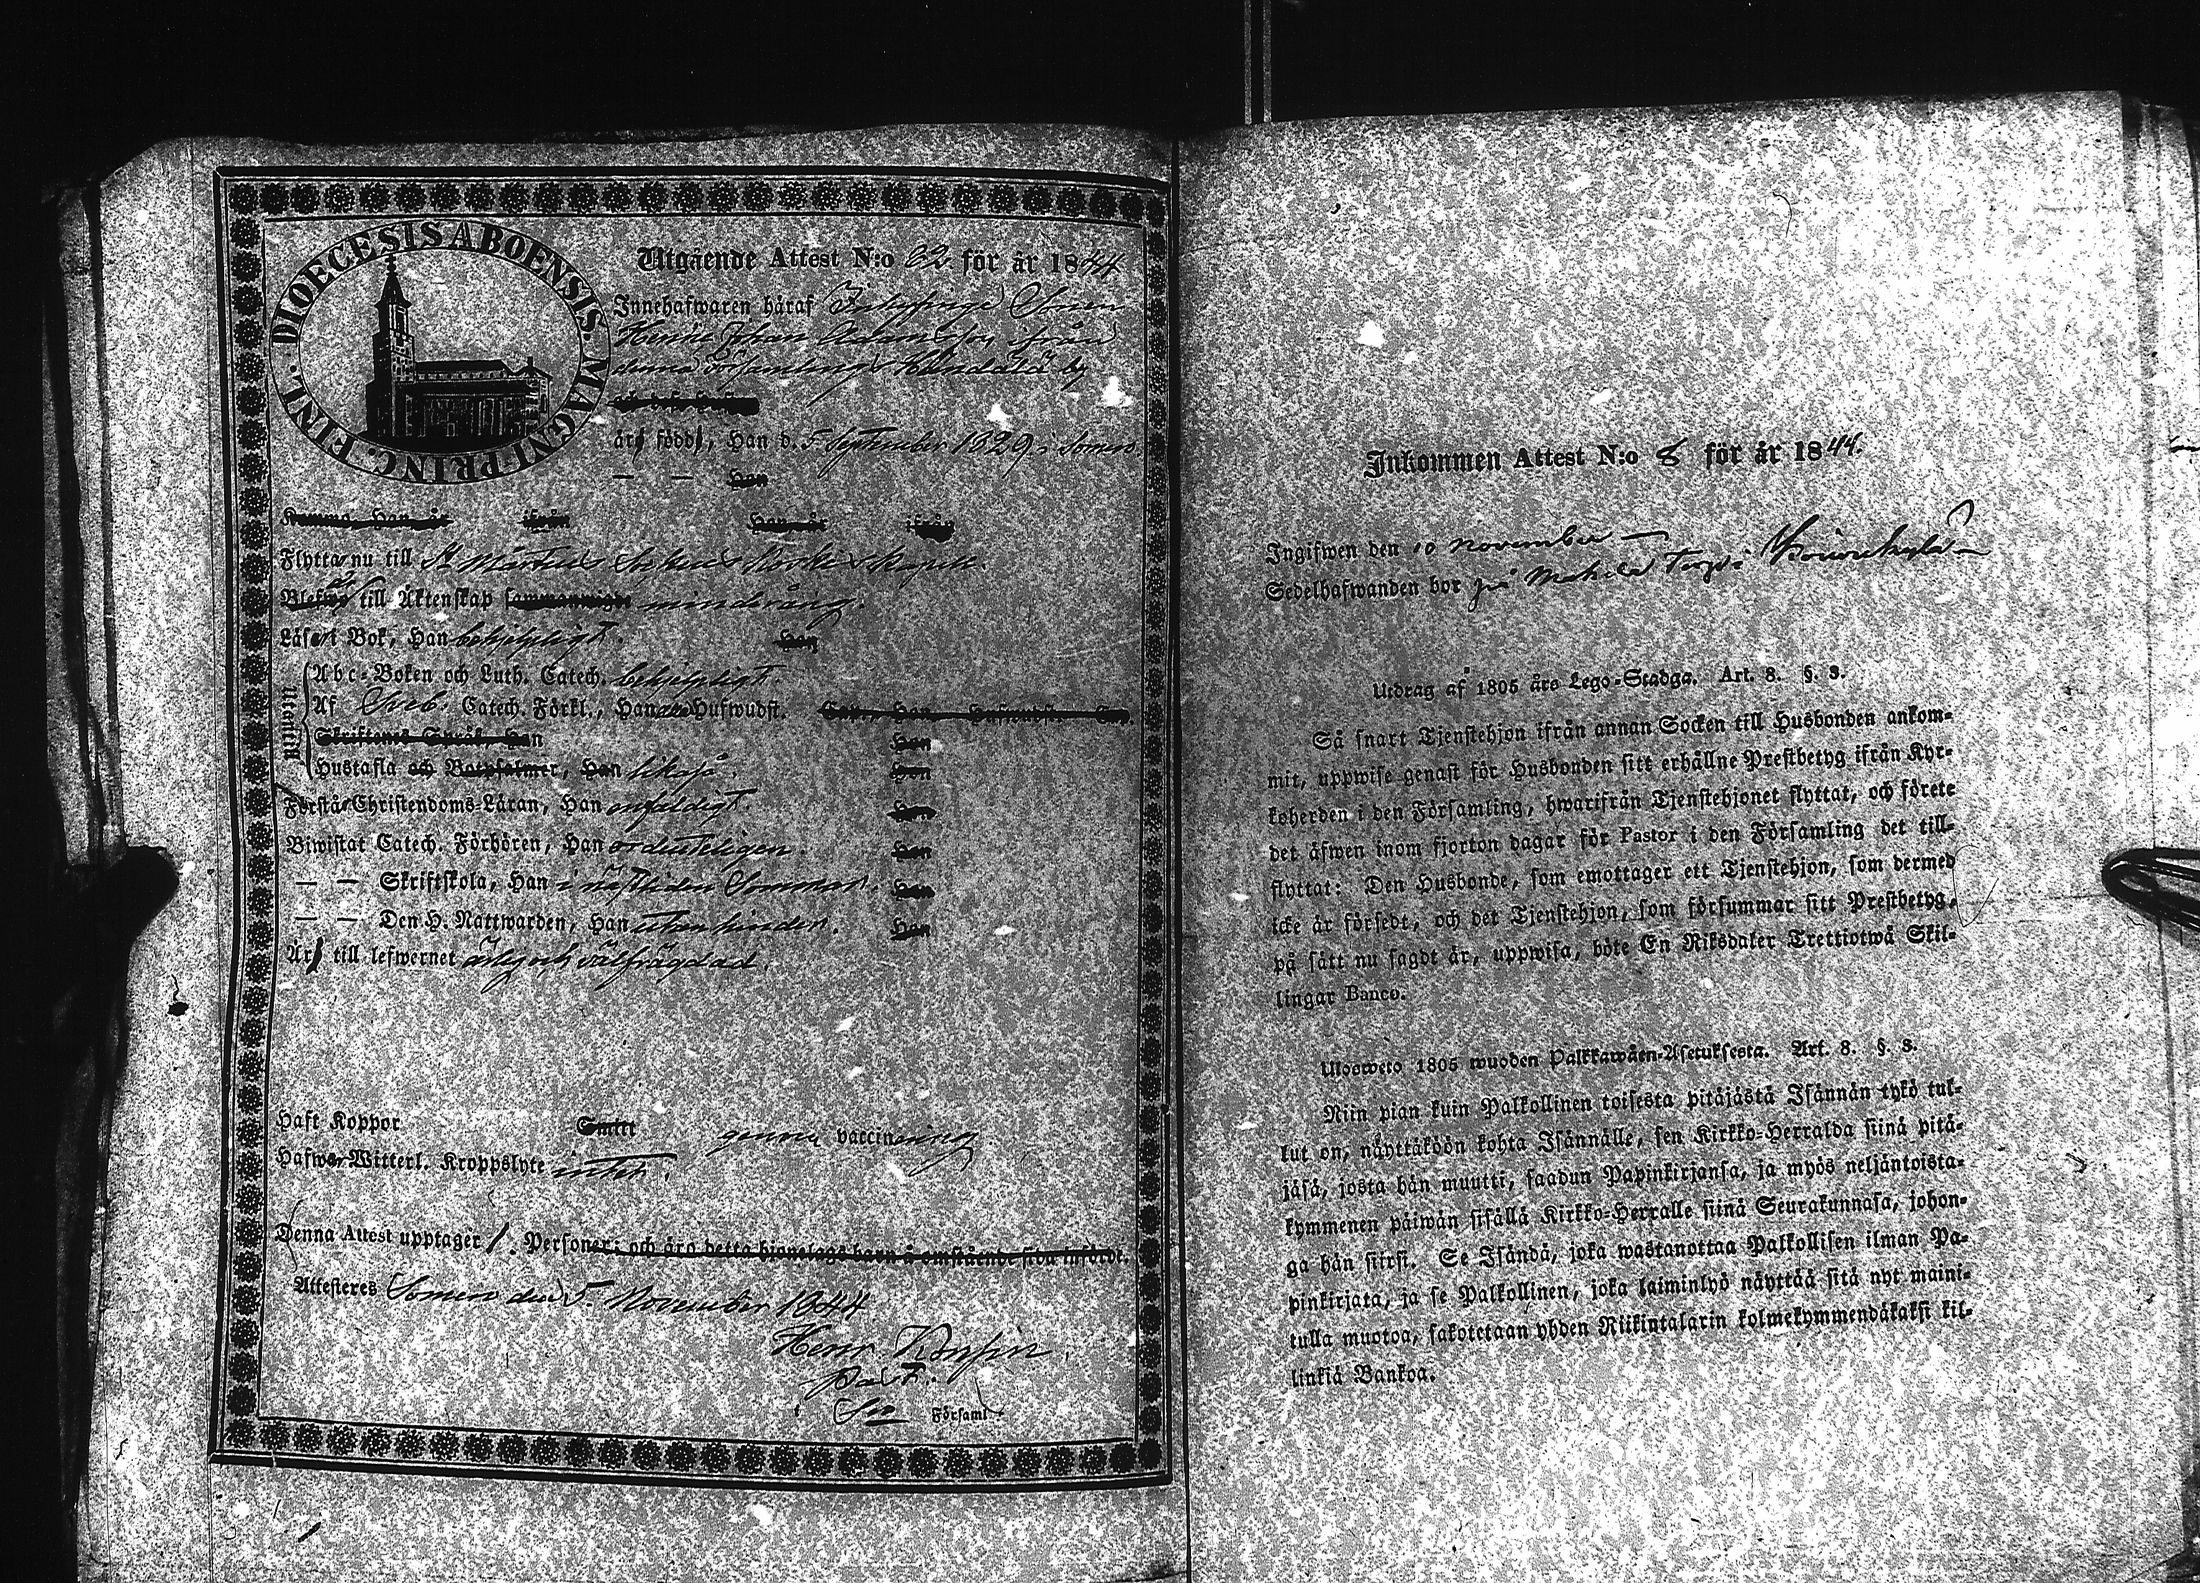 DIOECESIS ABOENSIS. MAGNI PRINC. FINL.
Utgående Attest N:o 62. för år 1844
Innehafwaren häraf Sonen
Henric Johan Adamsson ifrån
denna Församlings by
är, född, Han d. 5 September 1829 i Somero
— — Han
Han är ifrån Han är ifrån
Flyttar nu till St Mårtens Sokn Koskis Kapell.
Blefwo till Äktenskap minderårig.
Läser i Bok, Han behjelpligt. Han
Utentill
Abc-Boken och Luth. Catech. behjelpligt.
Af Sveb. Catech. Förkl., Han alla Hufwudst.
Skriftens Språk, Han Han
Hustafla och Botpsalmer, Han likaså. Han
Förstår Christendoms-Läran, Han enfaldigt. Han
Biwistat Catech. Förhören, Han ordenteligen. Han
— — Skriftskola, Han i nästliden Sommar. Han
— — Den H. Nattwarden, Han utan hinder. Han
Är till lefwernet ärlig och välfrägdad.
Haft Koppor Smitt genom vaccinering
Hafwer Witterl. Kroppslyte intet.
Denna Attest upptager 1. Personer; och äro detta hjonelags barn å omstående sida införde.
Attesteres Somero den 5. November 1844
Henr. Konsin
Past.
i So Församl.
Inkommen Attest N:o 8 för år 1844.
Ingifwen den 10 november —
Sedelhafwanden bor på Torp i
Utdrag af 1805 års Lego-Stadga. Art. 8. §. 3.
Så snart Tjenstehjon ifrån annan Socken till Husbonden ankom-
mit, uppwise genast för Husbonden sitt erhållne Prestbetyg ifrån Kyr-
koherden i den Församling, hwarifrån Tjenstehjonet flyttat, och förete
det äfwen inom fjorton dagar för Pastor i den Församling det till-
flyttat: Den Husbonde, som emottager ett Tjenstehjon, som dermed
icke är försedt, och det Tjenstehjon, som försummar sitt Prestbetyg,
på sätt nu sagdt är, uppwisa, böte En Riksdaler Trettiotwå Skil-
lingar Banco.
Ulosweto 1805 wuoden Palkkawäen-Asetuksesta. Art. 8. §. 3.
Niin pian kuin Palkollinen toisesta pitäjästä Isännän tykö tul-
lut on, näyttäköön kohta Isännälle, sen Kirkko-Herralda siinä pitä-
jäsä, josta hän muutti, saadun Papinkirjansa, ja myös neljäntoista-
kymmenen päiwän sisällä Kirkko-Herralle siinä Seurakunnasa, johon-
ga hän siirsi. Se Isändä, joka wastanottaa Palkollisen ilman Pa-
pinkirjata, ja se Palkollinen, joka laiminlyö näyttää sitä nyt maini-
tulla muotoa, sakotetaan yhden Riikintalarin kolmekymmendäkaksi kil-
linkiä Bankoa.